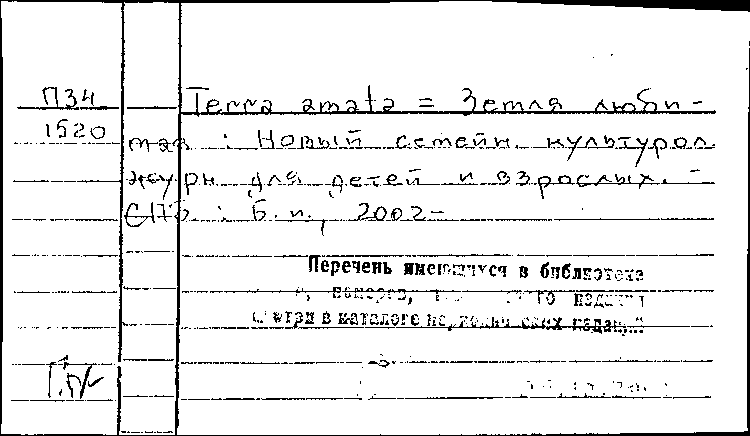 П34
1520
Terra amata = Земля люби-
мая : Новый семейн. культурол.
журн. для детей и взрослых. -
СПб : Б. и., 2002-
Перечень имеющихся в библиотеке
номеров, го издания
смотри в каталоге периодических изданий